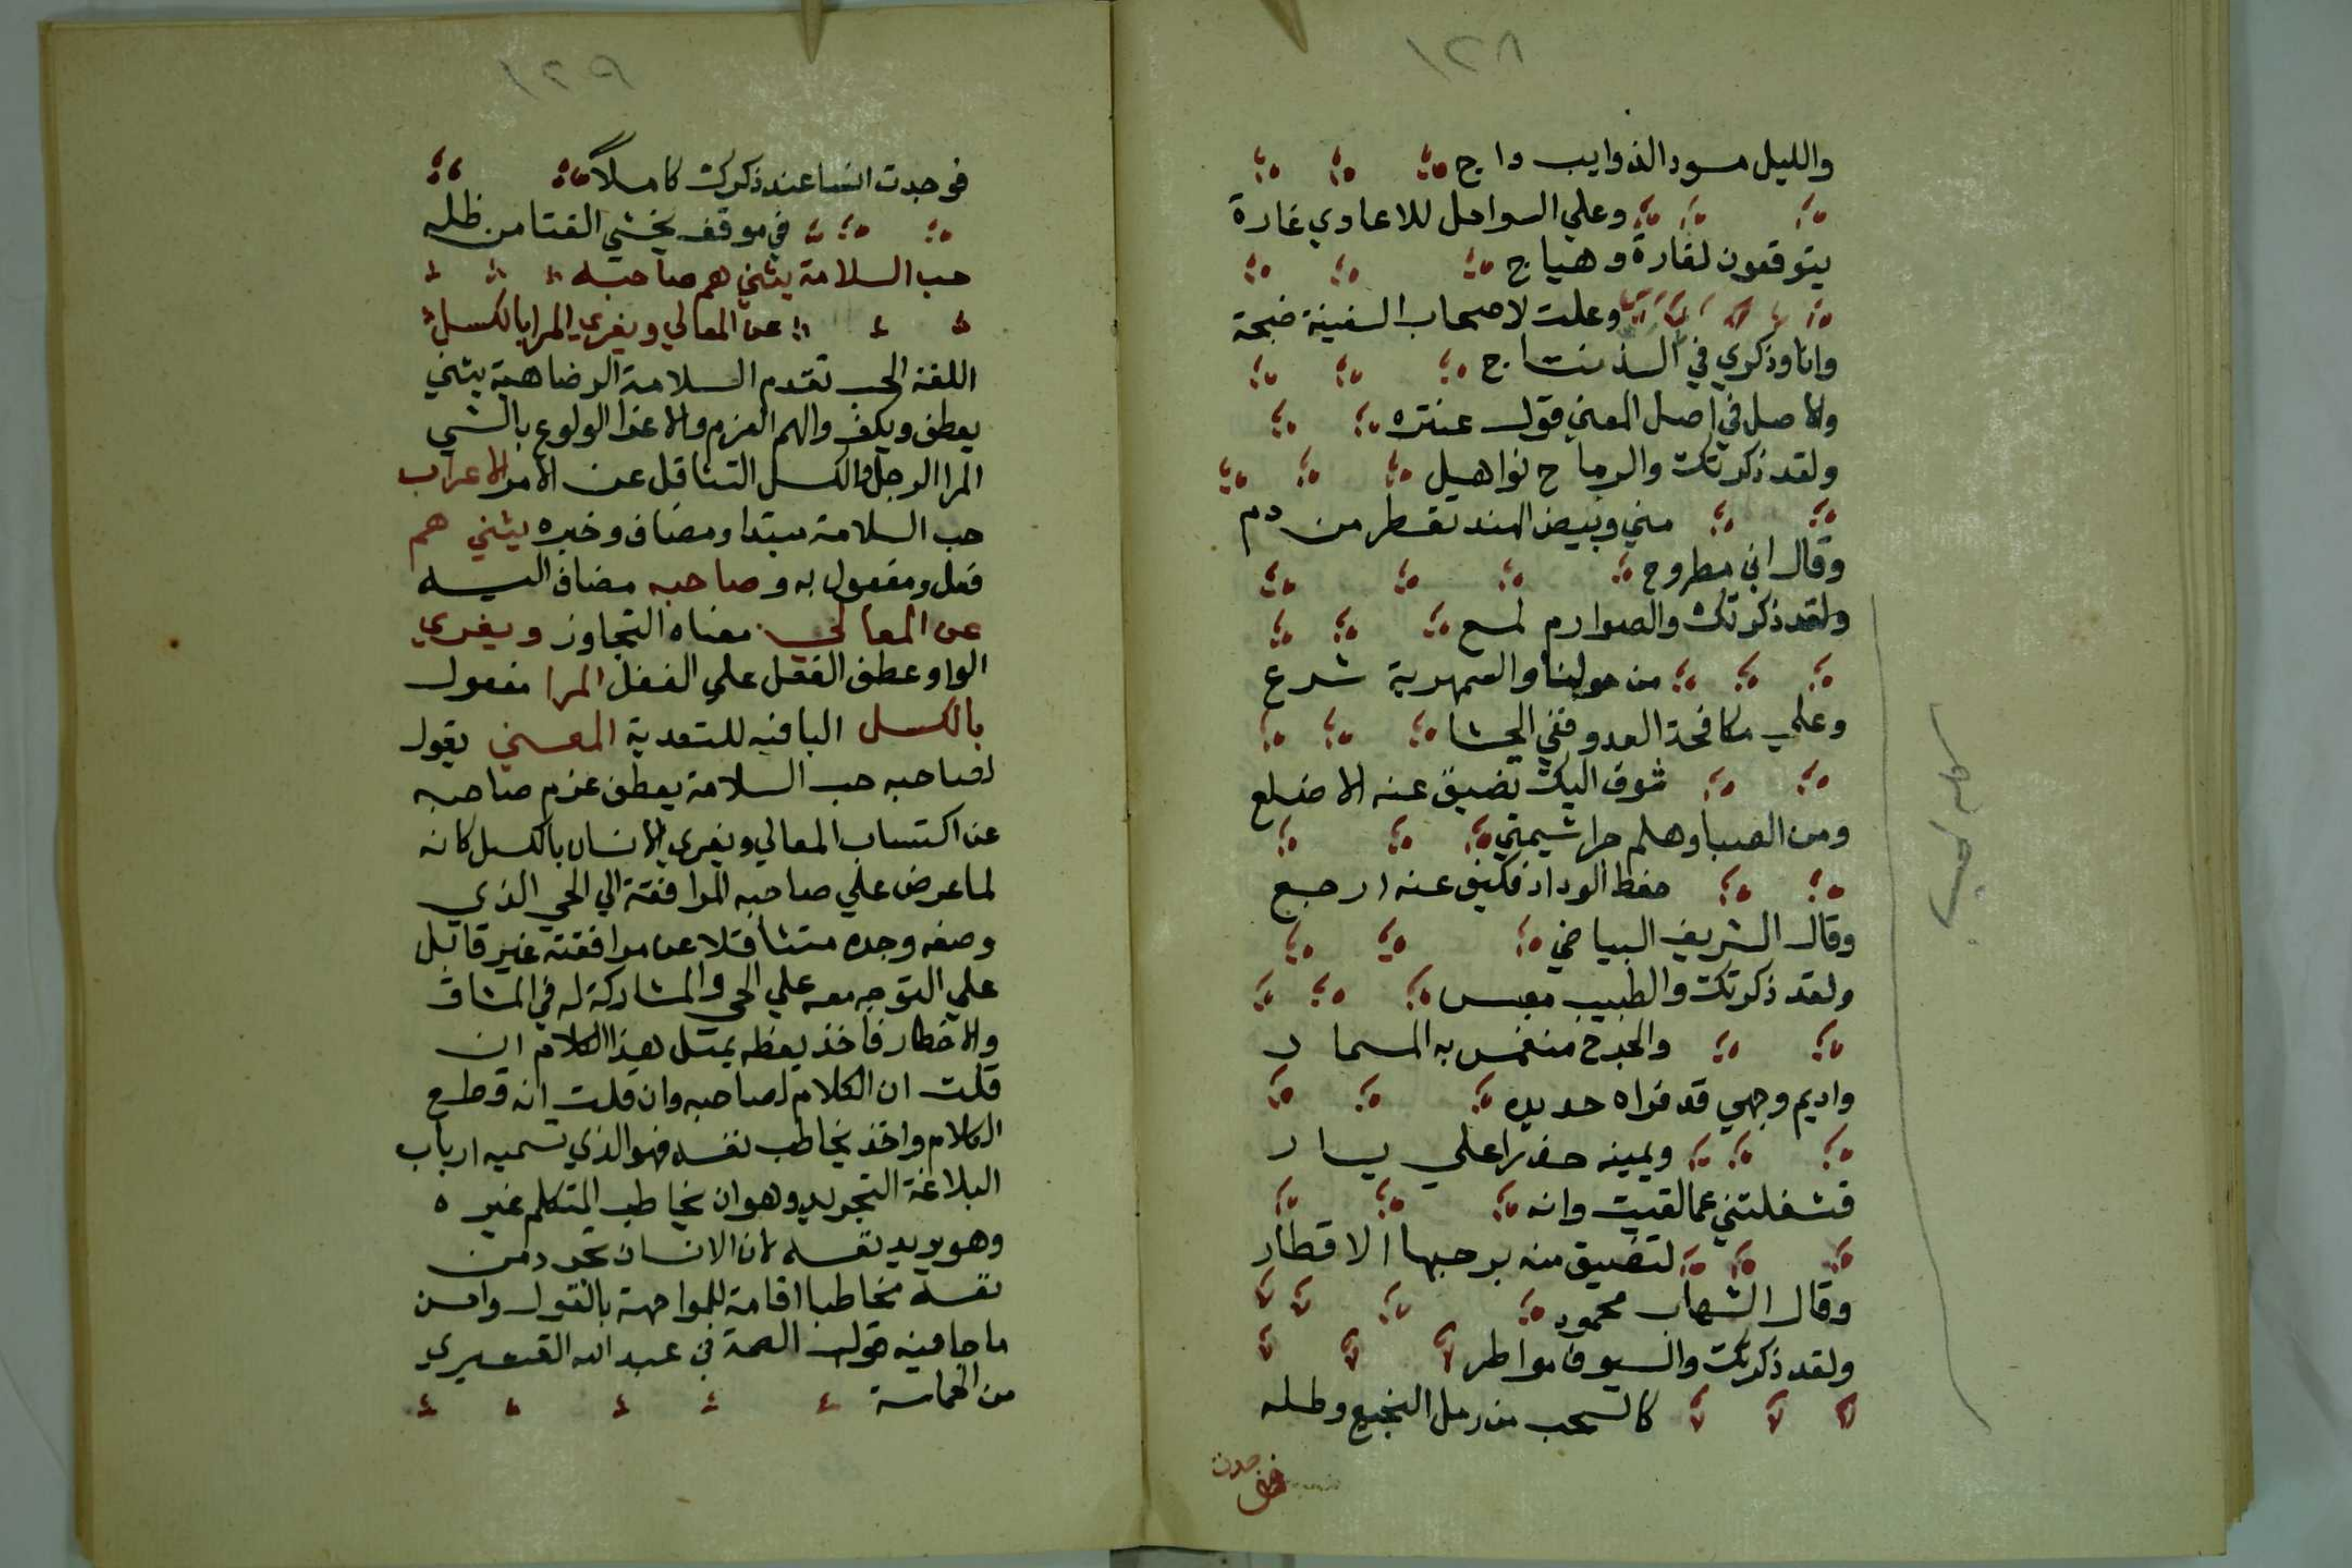 ١٢٨
والليل مسود الذوايب داج
وعلي السواحل للاعادي غارة
يتوقعون لغارة وهياج
وعلت لاصحاب السفينة ضجة
وانا وذكري في الذ تناج
والاصل في اصل المعني قول عنتره
ولقد ذكرتك والرماح نواهل
مني وبيض الهند تقطر من دم
وقال ابن مطروح
ولقد ذكرتك والصوارم لمع
من حولنا والسمهرية شرع
وعلي مكافحة العدو ففي الحشا
شوق اليك تضيق عنه الاضلع
ومن الصبا وهلم جرا شيمتي
حفظ الوداد فكيف عنه ارجع
وقال الشريف البياضي
ولقد ذكرتك والطبيب معبس
والجرح منغمس به المسمار
واديم وجهي قد فراه حديده
ويمينه حذرا علي يسار
فشغلتني عما لقيت وانه
لتضيق منه برحبها الاقطار
وقال الشهاب محمود
ولقد ذكرتك والسيوف مواطر
كالسحب من رمل النجيع وطله
فوجدت
١٢٩
فوجدت انسا عند ذكرك كاملاً
في موقف يخشي الفتا من ظله
حب السلامة يثني هم صاحبه
عن المعالي ويغري المرا بالكسل
اللغة الحب تقدم السلامة الرضاهمة يثني
يعطف ويكف والهم العزم والاغرا الولوع بالشي
المرا الرجل والكسل التثاقل عن الامر الاعراب
حب السلامة مبتدا ومضاف وخبره يثني هم
فعل ومفعول به وصاحبه مضاف اليه
عن المعالي معناه التجاوز ويغري
الواو عطف الفعل علي الفعل المرا مفعول
بالكسل البا فيه للتعدية المعني يقول
لصاحبه حب السلامة يعطف عزم صاحبه
عن اكتساب المعالي ويغري الانسان بالكسل كانه
لما عرض علي صاحبه الموافقة الي الحي الذي
وصفه وجده متثاقلا عن موافقته غير قابل
علي التوجه معه علي الحي والمشاركة له في المشاق
والاخطار فاخذ يعظه بمثل هذا الكلام ان
قلت ان الكلام لصاحبه وان قلت انه قطع
الكلام واخذ يخاطب نفسه فهو الذي تسميه ارباب
البلاغة التجريد وهو ان يخاطب المتكلم غيره
وهو يريد نفسه لان الانسان تجرد من
نفسه مخاطبا اقامة للمواجهة بالقول واحسن
ما جا فيه قول الصمة بن عبد الله القشيري
من الحماسة